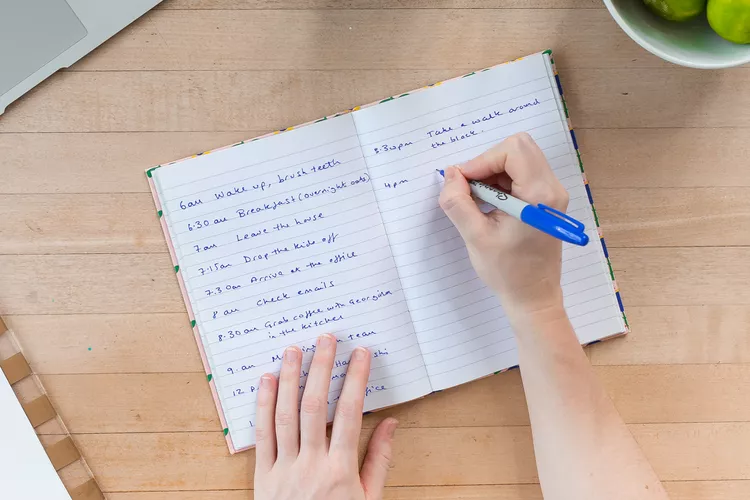 6am Wake up, brush teeth
6:30 am Breakfast (overnight oats)
7am Leave the house
7:15am Drop the kids off
7.30am Arrive at the office
8 am Check emails
8.30am Grab coffee with Georgina
in the kitchen
9.am team
12
3.30pm Take a walk around
the block.
4pm